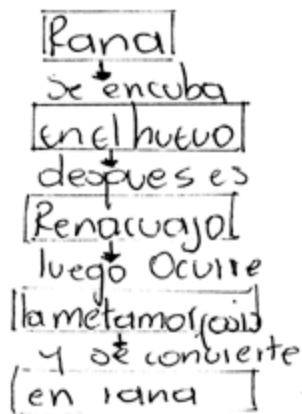 Rana
se encuba
en el huevo
despues es
Renacuajo
luego Ocurre
la metamorfosis
y se convierte
en rana